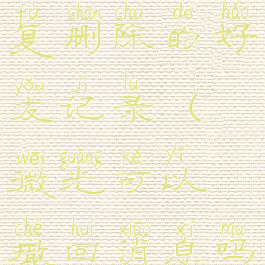 fù shān chú de hǎo
复删除的好
yǒu jì lù
友记录（
wēi guāng kě yǐ
微光可以
chè huí xiāo xī ma
撤回消息吗